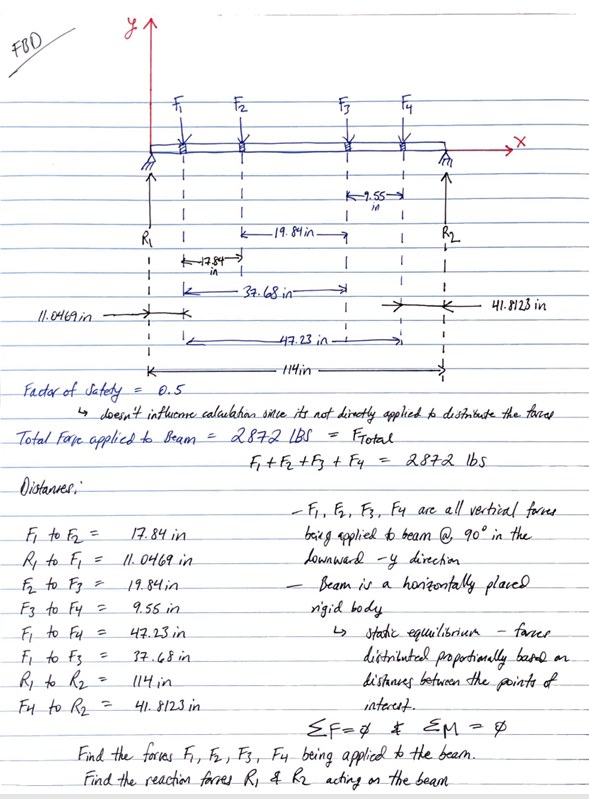 FBD
y
F1 F2 F3 F4
x
9.55 in
R1 19.84 in R2
17.84 in
37.68 in
11.0469 in 41.8123 in
47.23 in
114 in
Factor of Safety = 0.5
↳ doesn't influence calculation since its not directly applied to distribute the forces
Total Force applied to Beam = 2872 LBS = FTotal
F1 + F2 + F3 + F4 = 2872 lbs
Distances:
F1 to F2 = 17.84 in
R1 to F1 = 11.0469 in
F2 to F3 = 19.84 in
F3 to F4 = 9.55 in
F1 to F4 = 47.23 in
F1 to F3 = 37.68 in
R1 to R2 = 114 in
F4 to R2 = 41.8123 in
- F1, F2, F3, F4 are all vertical forces
being applied to beam @ 90° in the
downward -y direction
- Beam is a horizontally placed
rigid body
↳ static equilibrium - forces
distributed proportionally based on
distances between the points of
interest.
ΣF = ∅ & ΣM = ∅
Find the forces F1, F2, F3, F4 being applied to the beam.
Find the reaction forces R1 & R2 acting on the beam